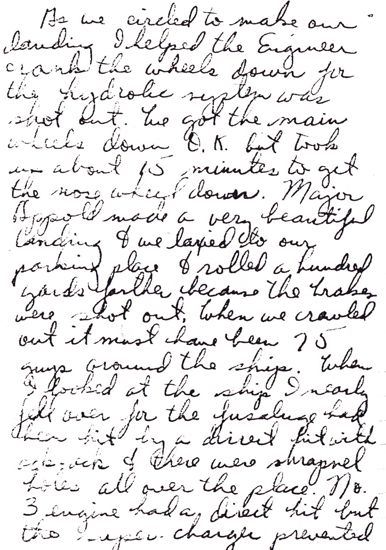 As we circled to make our
landing I helped the Engineer
crank the wheels down for
the hydrolic system was
shot out. We got the main
wheels down O.K. but took
us about 15 minutes to get
the nose wheel down. Major
Appold made a very beautiful
landing & we taxied to our
parking place & rolled a hundred
yards farther because the brakes
were shot out. When we crawled
out it must have been 75
guys around the ship. When
I looked at the ship I nearly
fell over for the fusaluge had
been hit by a direct hit with
ack-ack & there were shrapnel
holes all over the place. No.
3 engine had a direct hit but
the super charger prevented